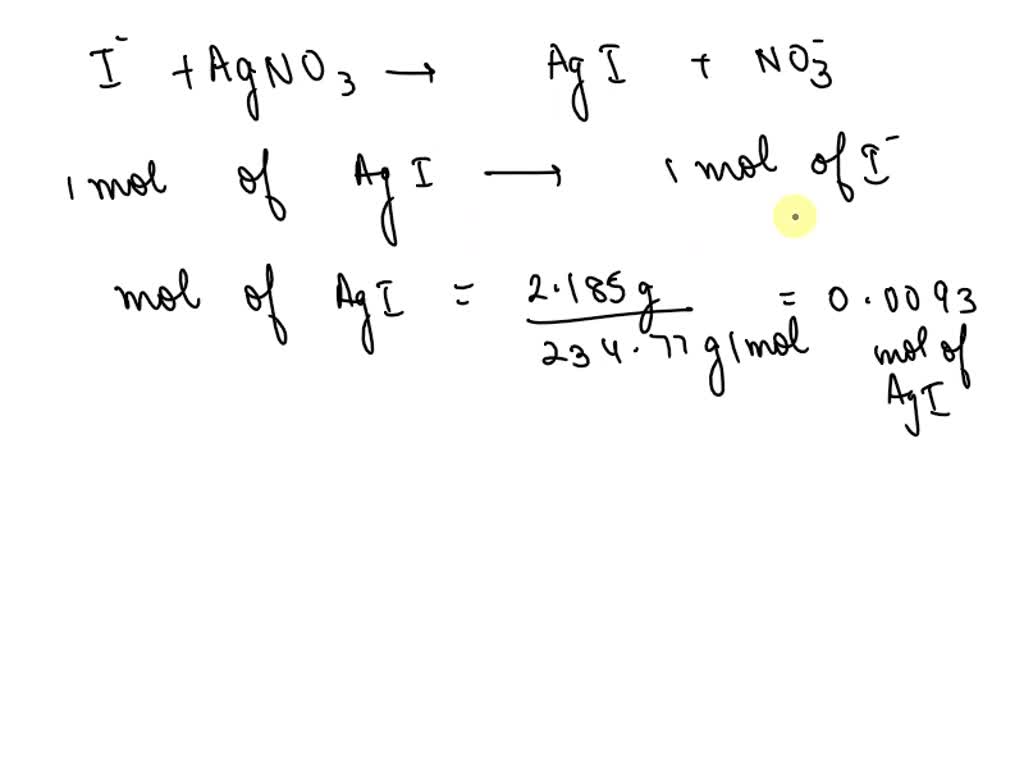 I⁻ + AgNO₃ → AgI + NO₃⁻
1 mol of AgI → 1 mol of I⁻
mol of AgI = 2.185g / 234.77 g/mol = 0.0093 mol of AgI